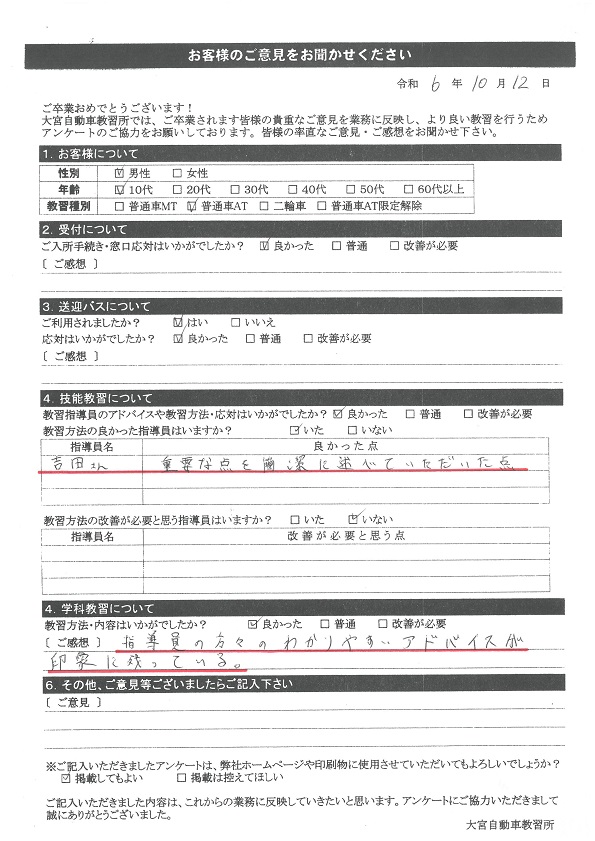 お客様のご意見をお聞かせください
令和 6 年 10 月 12 日
ご卒業おめでとうございます！
大宮自動車教習所では、ご卒業されます皆様の貴重なご意見を業務に反映し、より良い教習を行うため
アンケートのご協力をお願いしております。皆様の率直なご意見・ご感想をお聞かせ下さい。
1. お客様について
性別 ☑ 男性 ☐ 女性
年齢 ☑ 10代 ☐ 20代 ☐ 30代 ☐ 40代 ☐ 50代 ☐ 60代以上
教習種別 ☐ 普通車MT ☑ 普通車AT ☐ 二輪車 ☐ 普通車AT限定解除
2. 受付について
ご入所手続き・窓口応対はいかがでしたか？ ☑ 良かった ☐ 普通 ☐ 改善が必要
〔 ご感想 〕
3. 送迎バスについて
ご利用されましたか？ ☑ はい ☐ いいえ
応対はいかがでしたか？ ☑ 良かった ☐ 普通 ☐ 改善が必要
〔 ご感想 〕
4. 技能教習について
教習指導員のアドバイスや教習方法・応対はいかがでしたか？ ☑ 良かった ☐ 普通 ☐ 改善が必要
教習方法の良かった指導員はいますか？ ☑ いた ☐ いない
指導員名 良かった点
吉田さん 重要な点を簡潔に述べていただいた点
教習方法の改善が必要と思う指導員はいますか？ ☐ いた ☑ いない
指導員名 改善が必要と思う点
4. 学科教習について
教習方法・内容はいかがでしたか？ ☑ 良かった ☐ 普通 ☐ 改善が必要
〔 ご感想 〕 指導員の方々のわかりやすいアドバイスが
印象に残っている。
6. その他、ご意見等ございましたらご記入下さい
〔 ご意見 〕
※ご記入いただきましたアンケートは、弊社ホームページや印刷物に使用させていただいてもよろしいでしょうか？
☑ 掲載してもよい ☐ 掲載は控えてほしい
ご記入いただきました内容は、これからの業務に反映していきたいと思います。アンケートにご協力いただきまして
誠にありがとうございました。
大宮自動車教習所